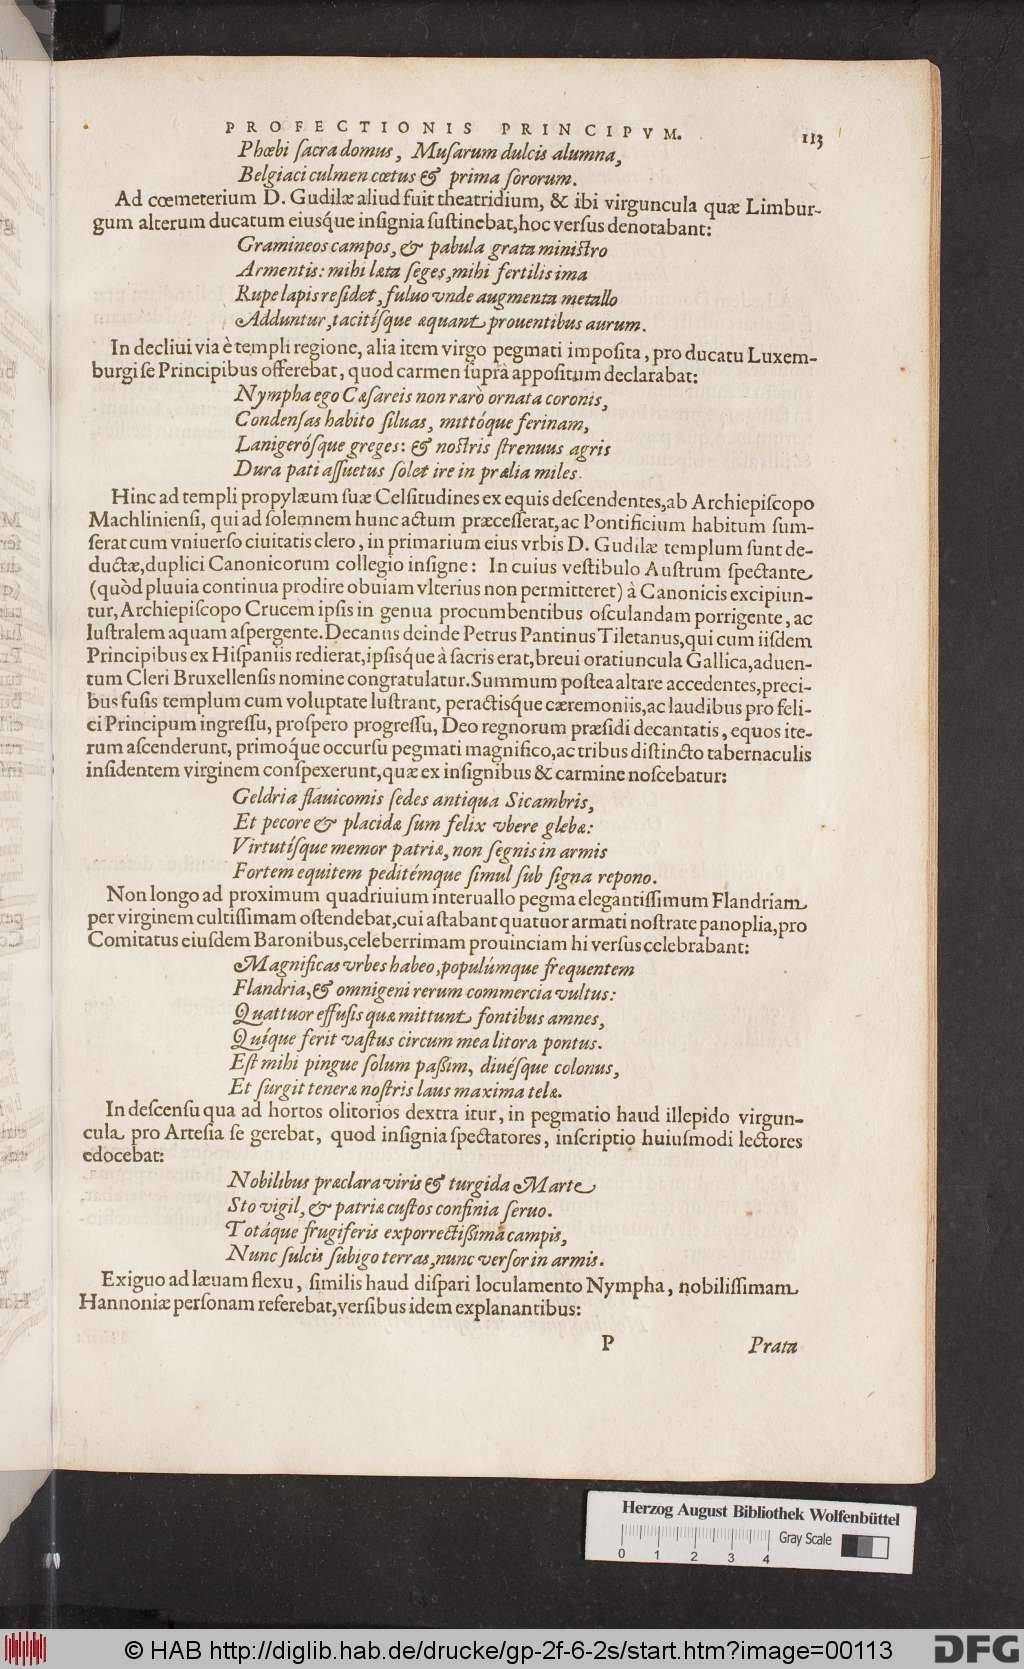 PROFECTIONIS PRINCIPVM. 113
Phœbi ſacra domus, Muſarum dulcis alumna,
Belgiaci culmen cœtus & prima ſororum.
Ad cœmeterium D. Gudilæ aliud fuit theatridium, & ibi virguncula quæ Limbur-
gum alterum ducatum eiusq́ue inſignia ſuſtinebat, hoc verſus denotabant:
Gramineos campos, & pabula grata miniſtro
Armentis: mihi læta ſeges, mihi fertilis ima
Rupe lapis reſidet, fuluo vnde augmenta metallo
Adduntur, tacitíſque æquant prouentibus aurum.
In decliui via è templi regione, alia item virgo pegmati impoſita, pro ducatu Luxem-
burgi ſe Principibus offerebat, quod carmen ſuprà appoſitum declarabat:
Nympha ego Cæſareis non rarò ornata coronis,
Condenſas habito ſiluas, mittóque ferinam,
Lanigeróſque greges: & noſtris ſtrenuus agris
Dura pati aſſuetus ſolet ire in prælia miles.
Hinc ad templi propylæum ſuæ Celſitudines ex equis deſcendentes, ab Archiepiſcopo
Machlinienſi, qui ad ſolemnem hunc actum præceſſerat, ac Pontificium habitum ſum-
ſerat cum vniuerſo ciuitatis clero, in primarium eius vrbis D. Gudilæ templum ſunt de-
ductæ, duplici Canonicorum collegio inſigne: In cuius veſtibulo Auſtrum ſpectante
(quòd pluuia continua prodire obuiam vlterius non permitteret) à Canonicis excipiun-
tur, Archiepiſcopo Crucem ipſis in genua procumbentibus oſculandam porrigente, ac
luſtralem aquam aſpergente. Decanus deinde Petrus Pantinus Tiletanus, qui cum iiſdem
Principibus ex Hiſpaniis redierat, ipſisq́ue à ſacris erat, breui oratiuncula Gallica, aduen-
tum Cleri Bruxellenſis nomine congratulatur. Summum poſtea altare accedentes, preci-
bus fuſis templum cum voluptate luſtrant, peractisq́ue cæremoniis, ac laudibus pro feli-
ci Principum ingreſſu, proſpero progreſſu, Deo regnorum præſidi decantatis, equos ite-
rum aſcenderunt, primoq́ue occurſu pegmati magnifico, ac tribus diſtincto tabernaculis
inſidentem virginem conſpexerunt, quæ ex inſignibus & carmine noſcebatur:
Geldria flauicomis ſedes antiqua Sicambris,
Et pecore & placidæ ſum felix vbere glebæ:
Virtutíſque memor patriæ, non ſegnis in armis
Fortem equitem peditémque ſimul ſub ſigna repono.
Non longo ad proximum quadriuium interuallo pegma elegantiſſimum Flandriam
per virginem cultiſſimam oſtendebat, cui aſtabant quatuor armati noſtrate panoplia, pro
Comitatus eiuſdem Baronibus, celeberrimam prouinciam hi verſus celebrabant:
Magnificas vrbes habeo, populúmque frequentem
Flandria, & omnigeni rerum commercia vultus:
Quattuor effuſis quæ mittunt fontibus amnes,
Quíque ferit vaſtus circum mea litora pontus.
Eſt mihi pingue ſolum paßim, diuéſque colonus,
Et ſurgit teneræ noſtris laus maxima telæ.
In deſcenſu qua ad hortos olitorios dextra itur, in pegmatio haud illepido virgun-
cula pro Arteſia ſe gerebat, quod inſignia ſpectatores, inſcriptio huiuſmodi lectores
edocebat:
Nobilibus præclara viris & turgida Marte
Sto vigil, & patriæ cuſtos confinia ſeruo.
Totáque frugiferis exporrectißima campis,
Nunc ſulcis ſubigo terras, nunc verſor in armis.
Exiguo ad læuam flexu, ſimilis haud diſpari loculamento Nympha, nobiliſſimam
Hannoniæ perſonam referebat, verſibus idem explanantibus:
P Prata
Herzog August Bibliothek Wolfenbüttel
Gray Scale
0 1 2 3 4
© HAB http://diglib.hab.de/drucke/gp-2f-6-2s/start.htm?image=00113
DFG